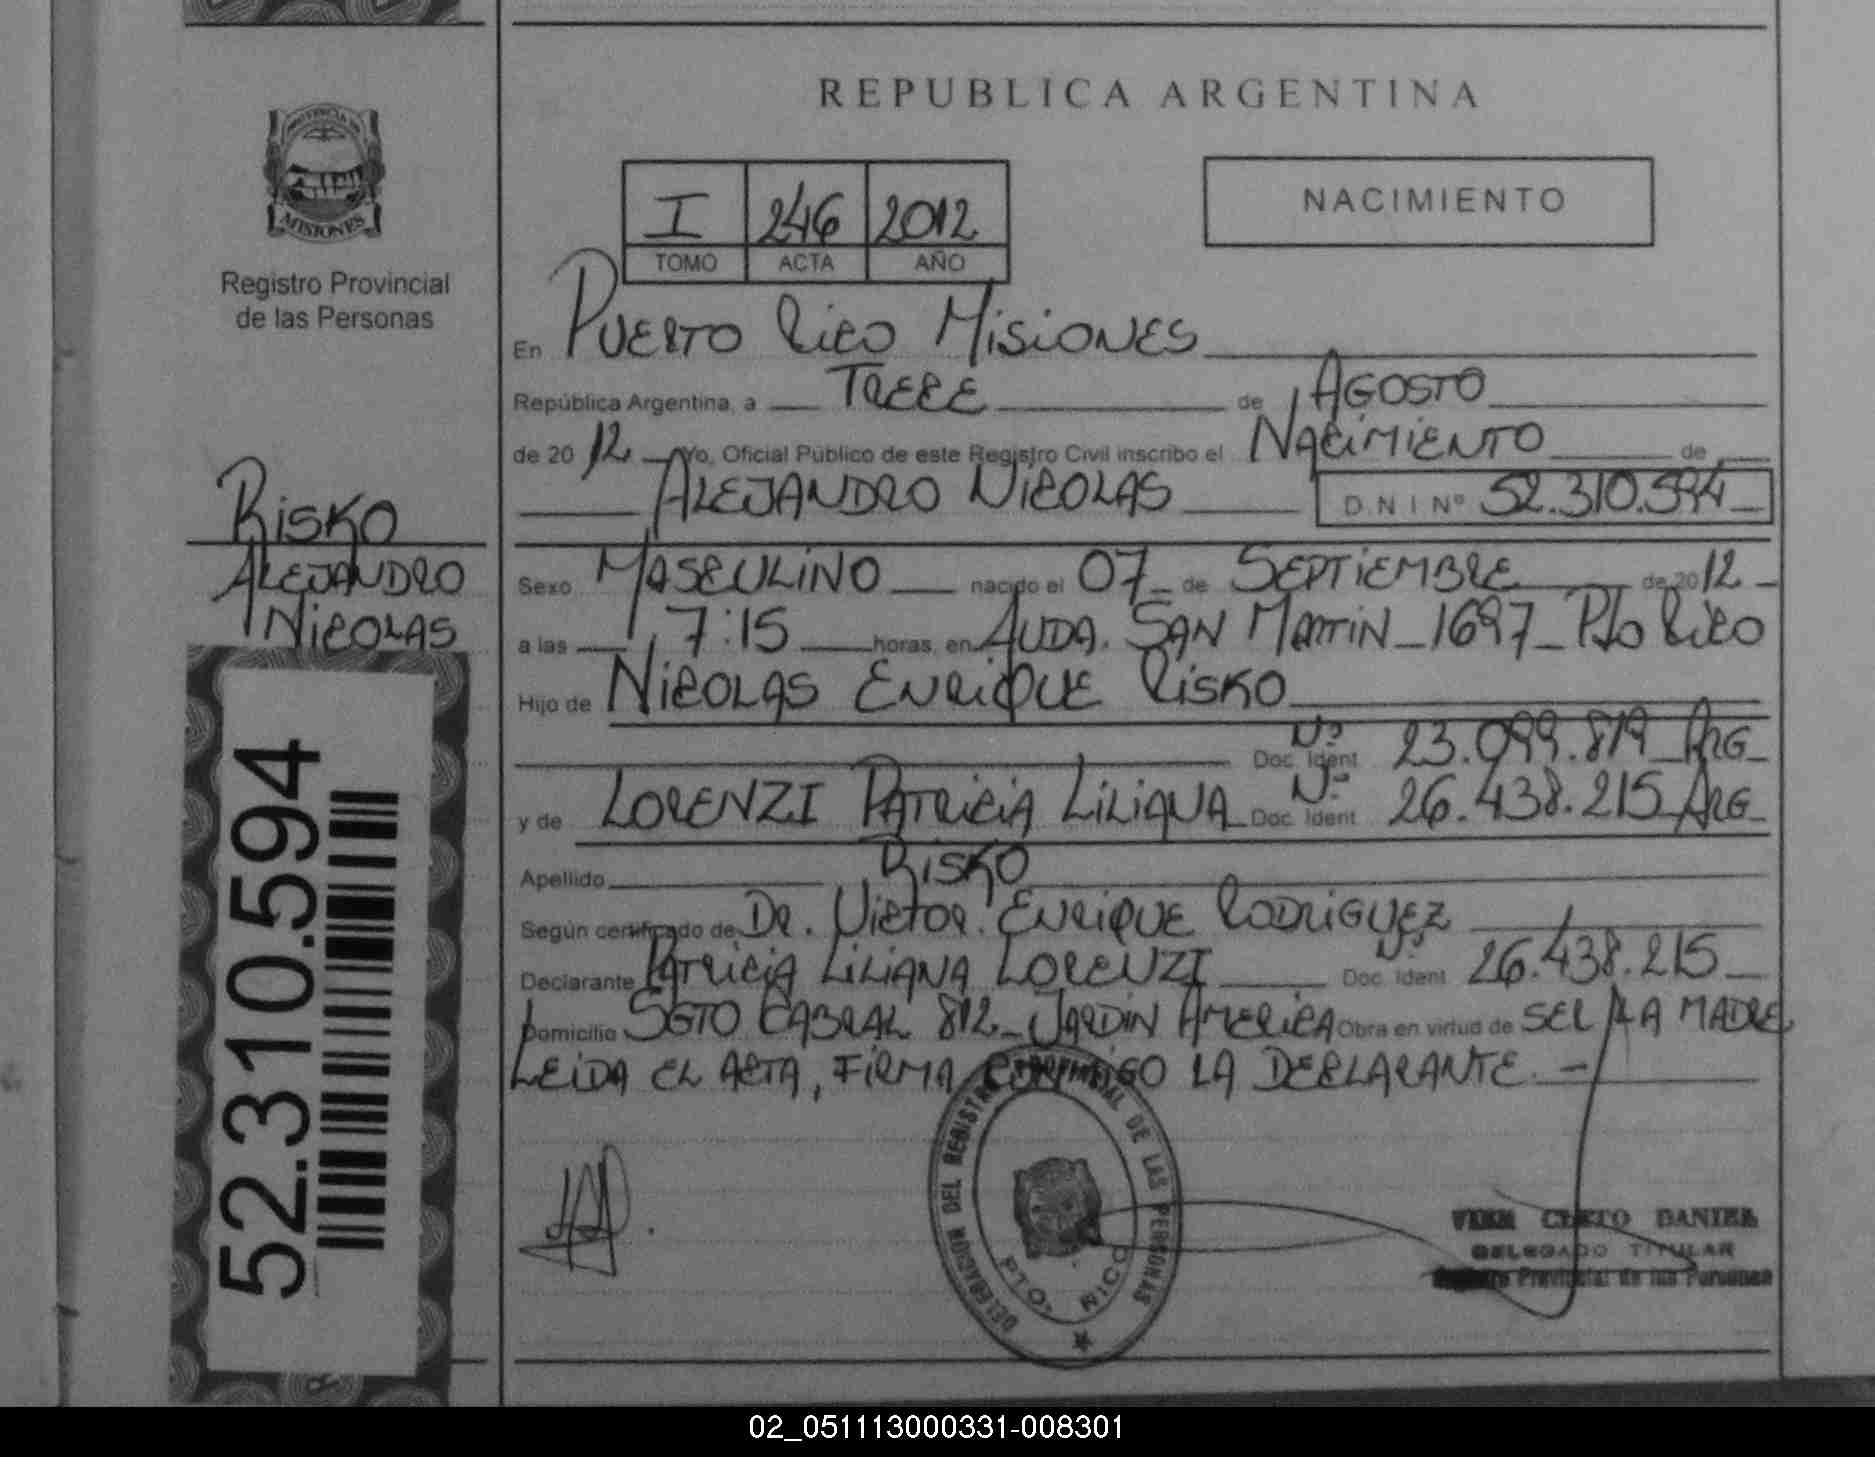 REPUBLICA ARGENTINA
PROVINCIA DE
MISIONES
Registro Provincial
de las Personas
I 246 2012
TOMO ACTA AÑO
NACIMIENTO
En PUERTO RICO MISIONES
República Argentina, a TRECE de AGOSTO
de 20 12 Yo, Oficial Público de este Registro Civil inscribo el NACIMIENTO de
ALEJANDRO NICOLAS D.N.I Nº 52.310.594
RISKO
ALEJANDRO
NICOLAS
Sexo MASCULINO nacido el 07 de SEPTIEMBRE de 20 12
a las 7:15 horas, en AVDA. SAN MARTIN 1697 PTO RICO
Hijo de NICOLAS ENRIQUE RISKO
Doc. Ident. Nº 23.099.819 ARG
y de LORENZI PATRICIA LILIANA Doc. Ident. Nº 26.438.215 ARG
Apellido RISKO
Según certificado de DR. VICTOR ENRIQUE RODRIGUEZ
Declarante PATRICIA LILIANA LORENZI Doc. Ident. Nº 26.438.215
Domicilio SGTO CABRAL 812 JARDIN AMERICA Obra en virtud de SER LA MADRE
LEIDA EL ACTA, FIRMA CONMIGO LA DECLARANTE.-
52.310.594
DELEGACION DEL REGISTRO PROVINCIAL DE LAS PERSONAS
PTO. RICO
CLETO DANIEL
DELEGADO TITULAR
Registro Provincial de las Personas
02_051113000331-008301